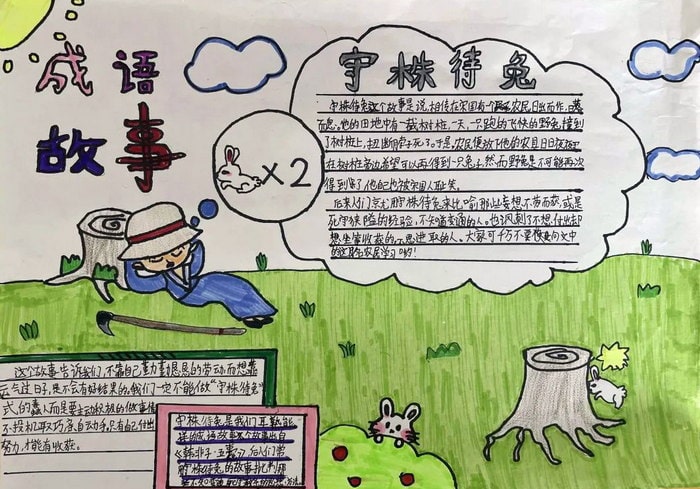 成语
故事
守株待兔
×2
守株待兔这个故事是说,相传在宋国有一个农民日出而作,日落
而息。他的田地中有一截树桩。一天,一只跑的飞快的野兔撞到
了树桩上,扭断脖子死了。于是,农民便放下他的农具日日夜夜
在树桩旁边希望可以再得到一只兔子。然而野兔是不可能再次
得到的了他自己也被宋国人耻笑。
后来人们常用守株待兔来比喻那些妄想不劳而获,或是
死守狭隘的经验,不知变通的人。也讽刺了不想付出却
想坐享收获的不思进取的人。大家可千万不要像文中
的农民学习哟!
这个故事告诉我们,不靠自己勤勤恳恳的劳动而想靠
运气过日子,是不会有好结果的。我们一定不能做"守株待兔"
式的蠢人而是要主动积极的做事情
不投机取巧,亲自动手,只有自己付出
努力,才能有收获。
守株待兔是我们耳熟能
详的成语故事这个故事出自
《韩非子·五蠹》
守株待兔的故事